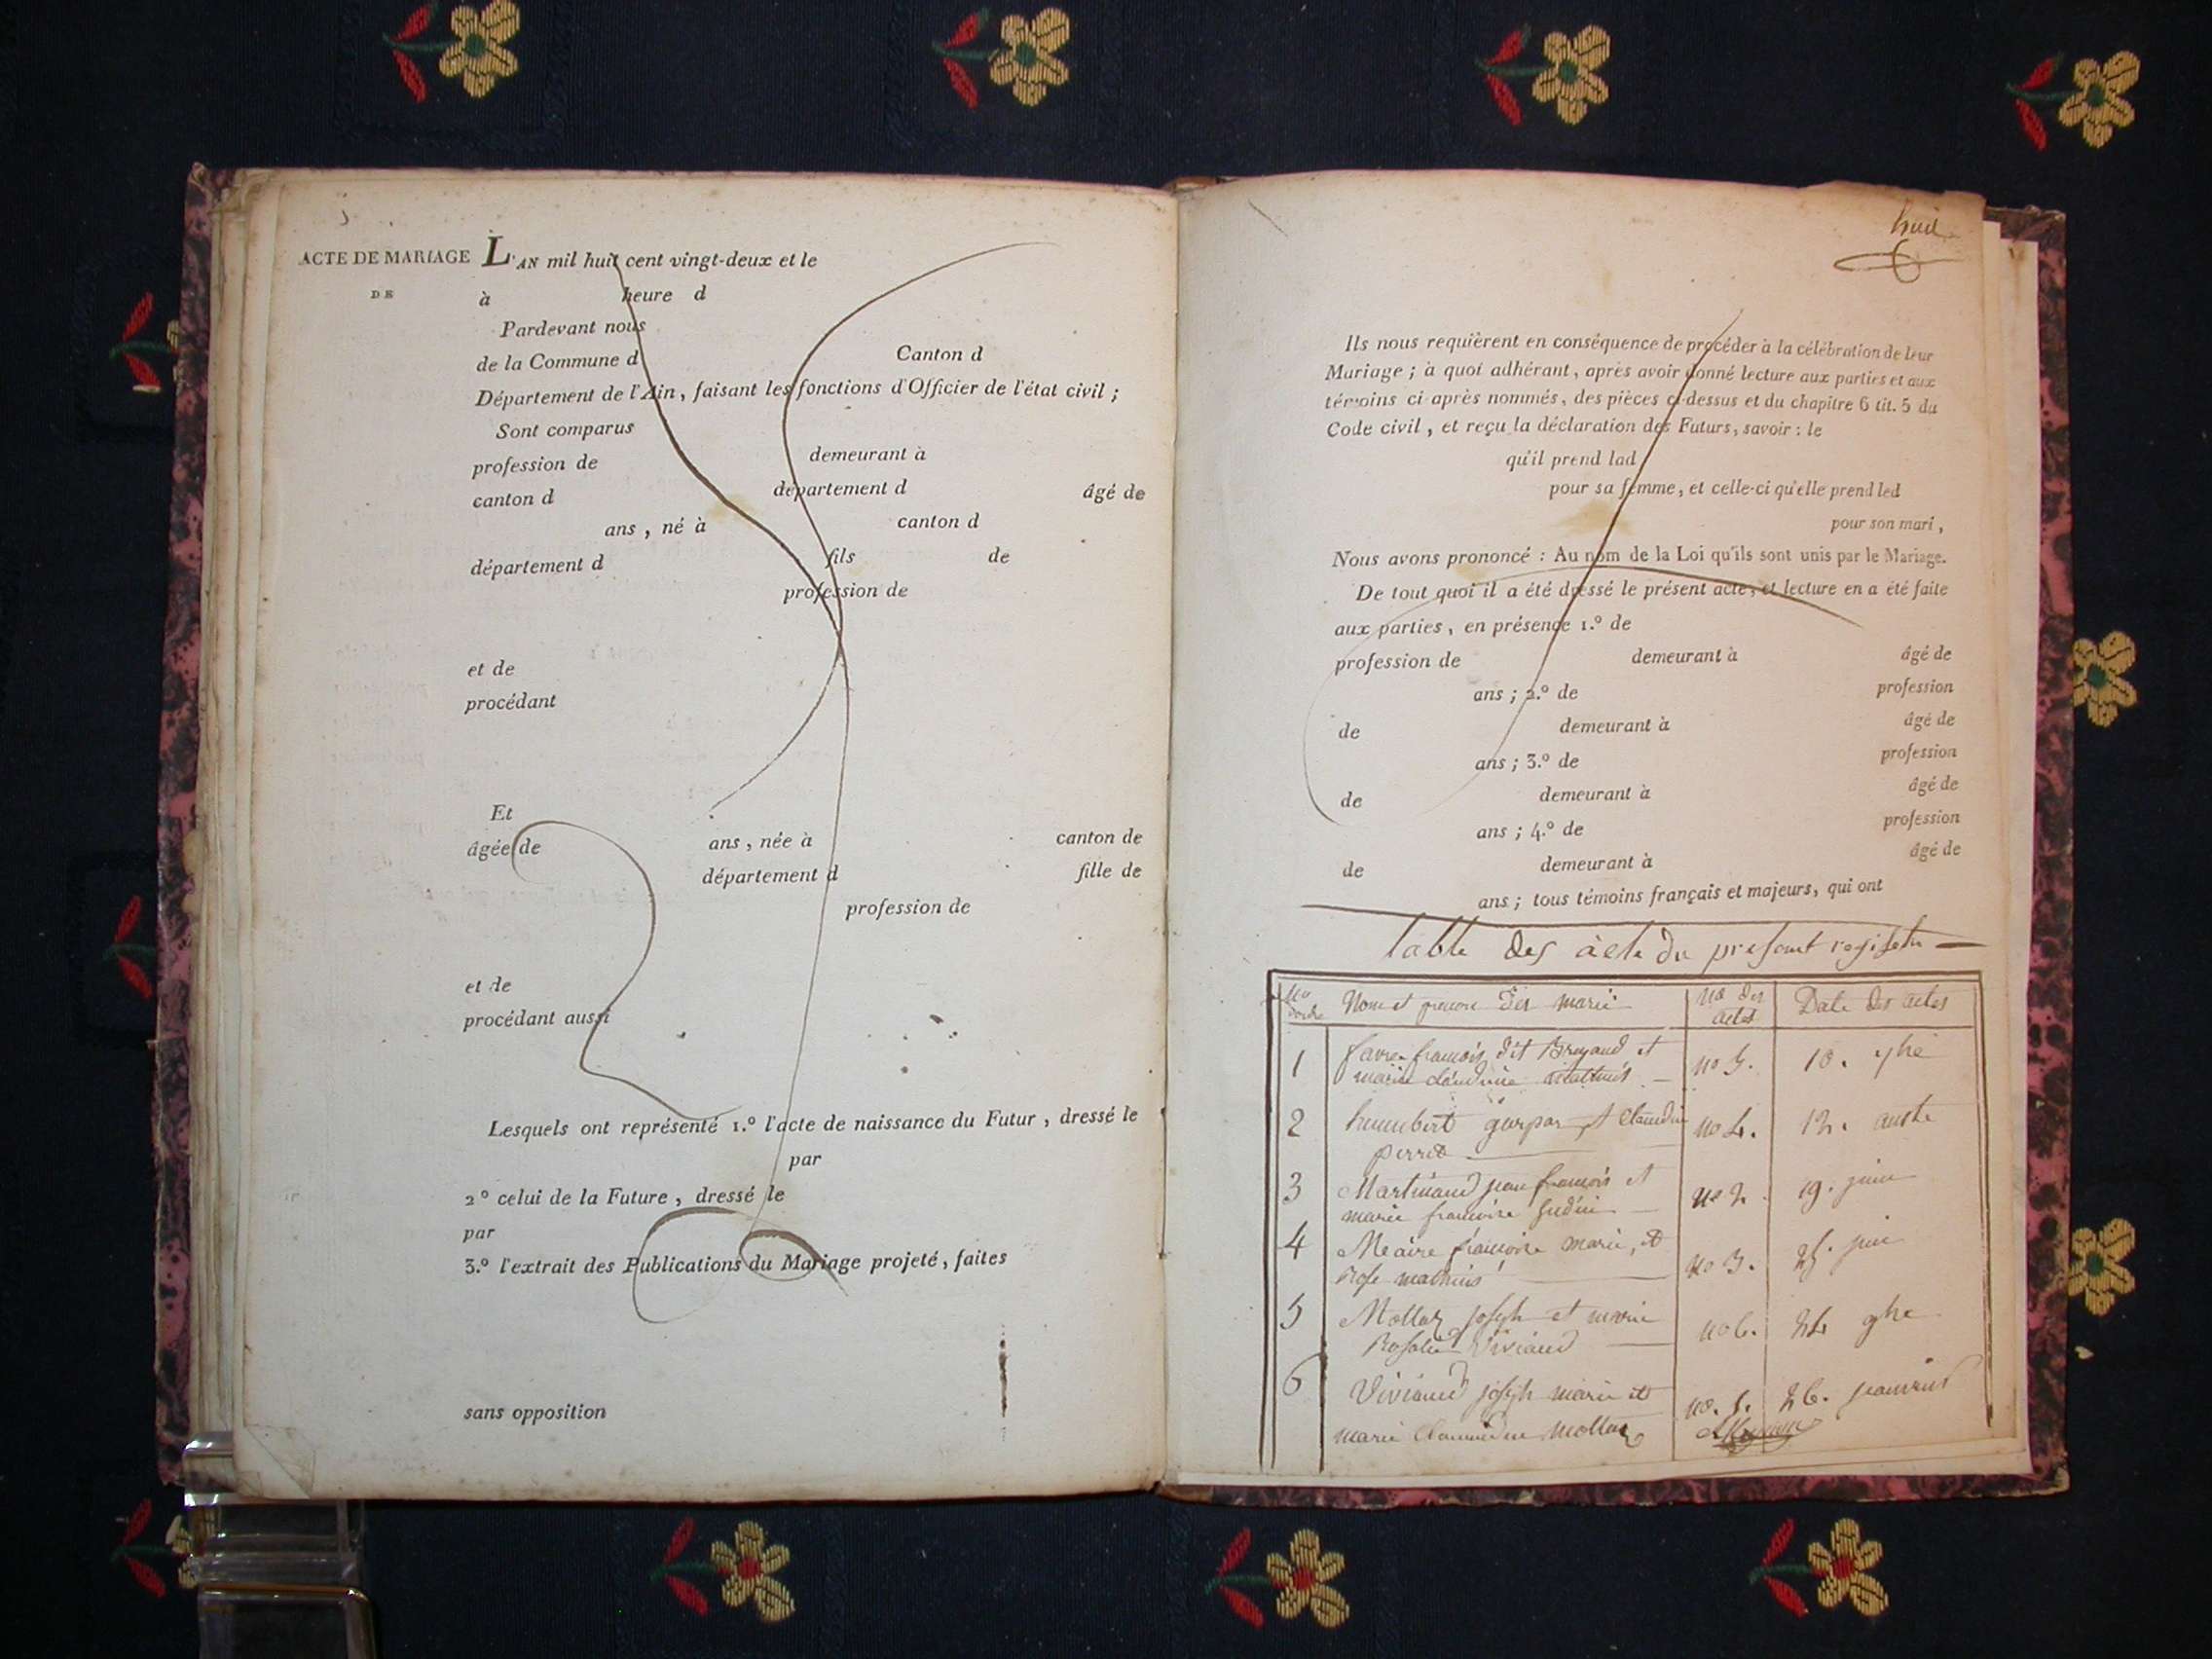 ACTE DE MARIAGE
DE
L'AN mil huit cent vingt-deux et le
à heure d
Pardevant nous
de la Commune d Canton d
Département de l'Ain, faisant les fonctions d'Officier de l'état civil ;
Sont comparus
profession de demeurant à
canton d département d âgé de
ans, né à canton d
département d fils de
profession de
et de
procédant
Et
âgée de ans, née à canton de
département d fille de
profession de
et de
procédant aussi
Lesquels ont représenté 1.º l'acte de naissance du Futur, dressé le
par
2º celui de la Future, dressé le
par
3.º l'extrait des Publications du Mariage projeté, faites
sans opposition
huit
Ils nous requièrent en conséquence de procéder à la célébration de leur
Mariage ; à quoi adhérant, après avoir donné lecture aux parties et aux
témoins ci-après nommés, des pièces ci-dessus et du chapitre 6 tit. 5 du
Code civil, et reçu la déclaration des Futurs, savoir : le
qu'il prend lad
pour sa femme, et celle-ci qu'elle prend led
pour son mari,
Nous avons prononcé : Au nom de la Loi qu'ils sont unis par le Mariage.
De tout quoi il a été dressé le présent acte, et lecture en a été faite
aux parties, en présence 1.º de
profession de demeurant à âgé de
ans ; 2.º de profession
de demeurant à âgé de
ans ; 3.º de profession
de demeurant à âgé de
ans ; 4.º de profession
de demeurant à âgé de
ans ; tous témoins français et majeurs, qui ont
table des acte du present registre
No dordre Nom et prenom des marié No des actes Date des actes
1 favre françois dit et no 5. 10. 9bre
marie claudine
2 humbert gaspar et Claudine no 4. 12. auste
perret
3 Martinand jean françois et no 2. 19. juin
marie françoise
4 françois marie, et no 3. 25. juin
Rose mathieu
5 Mollaz joseph et marie no 6. 24 9bre
Rosalie Viviand
6 Viviand joseph marie et no. 1. 26. janvier
marie Claudine Mollaz